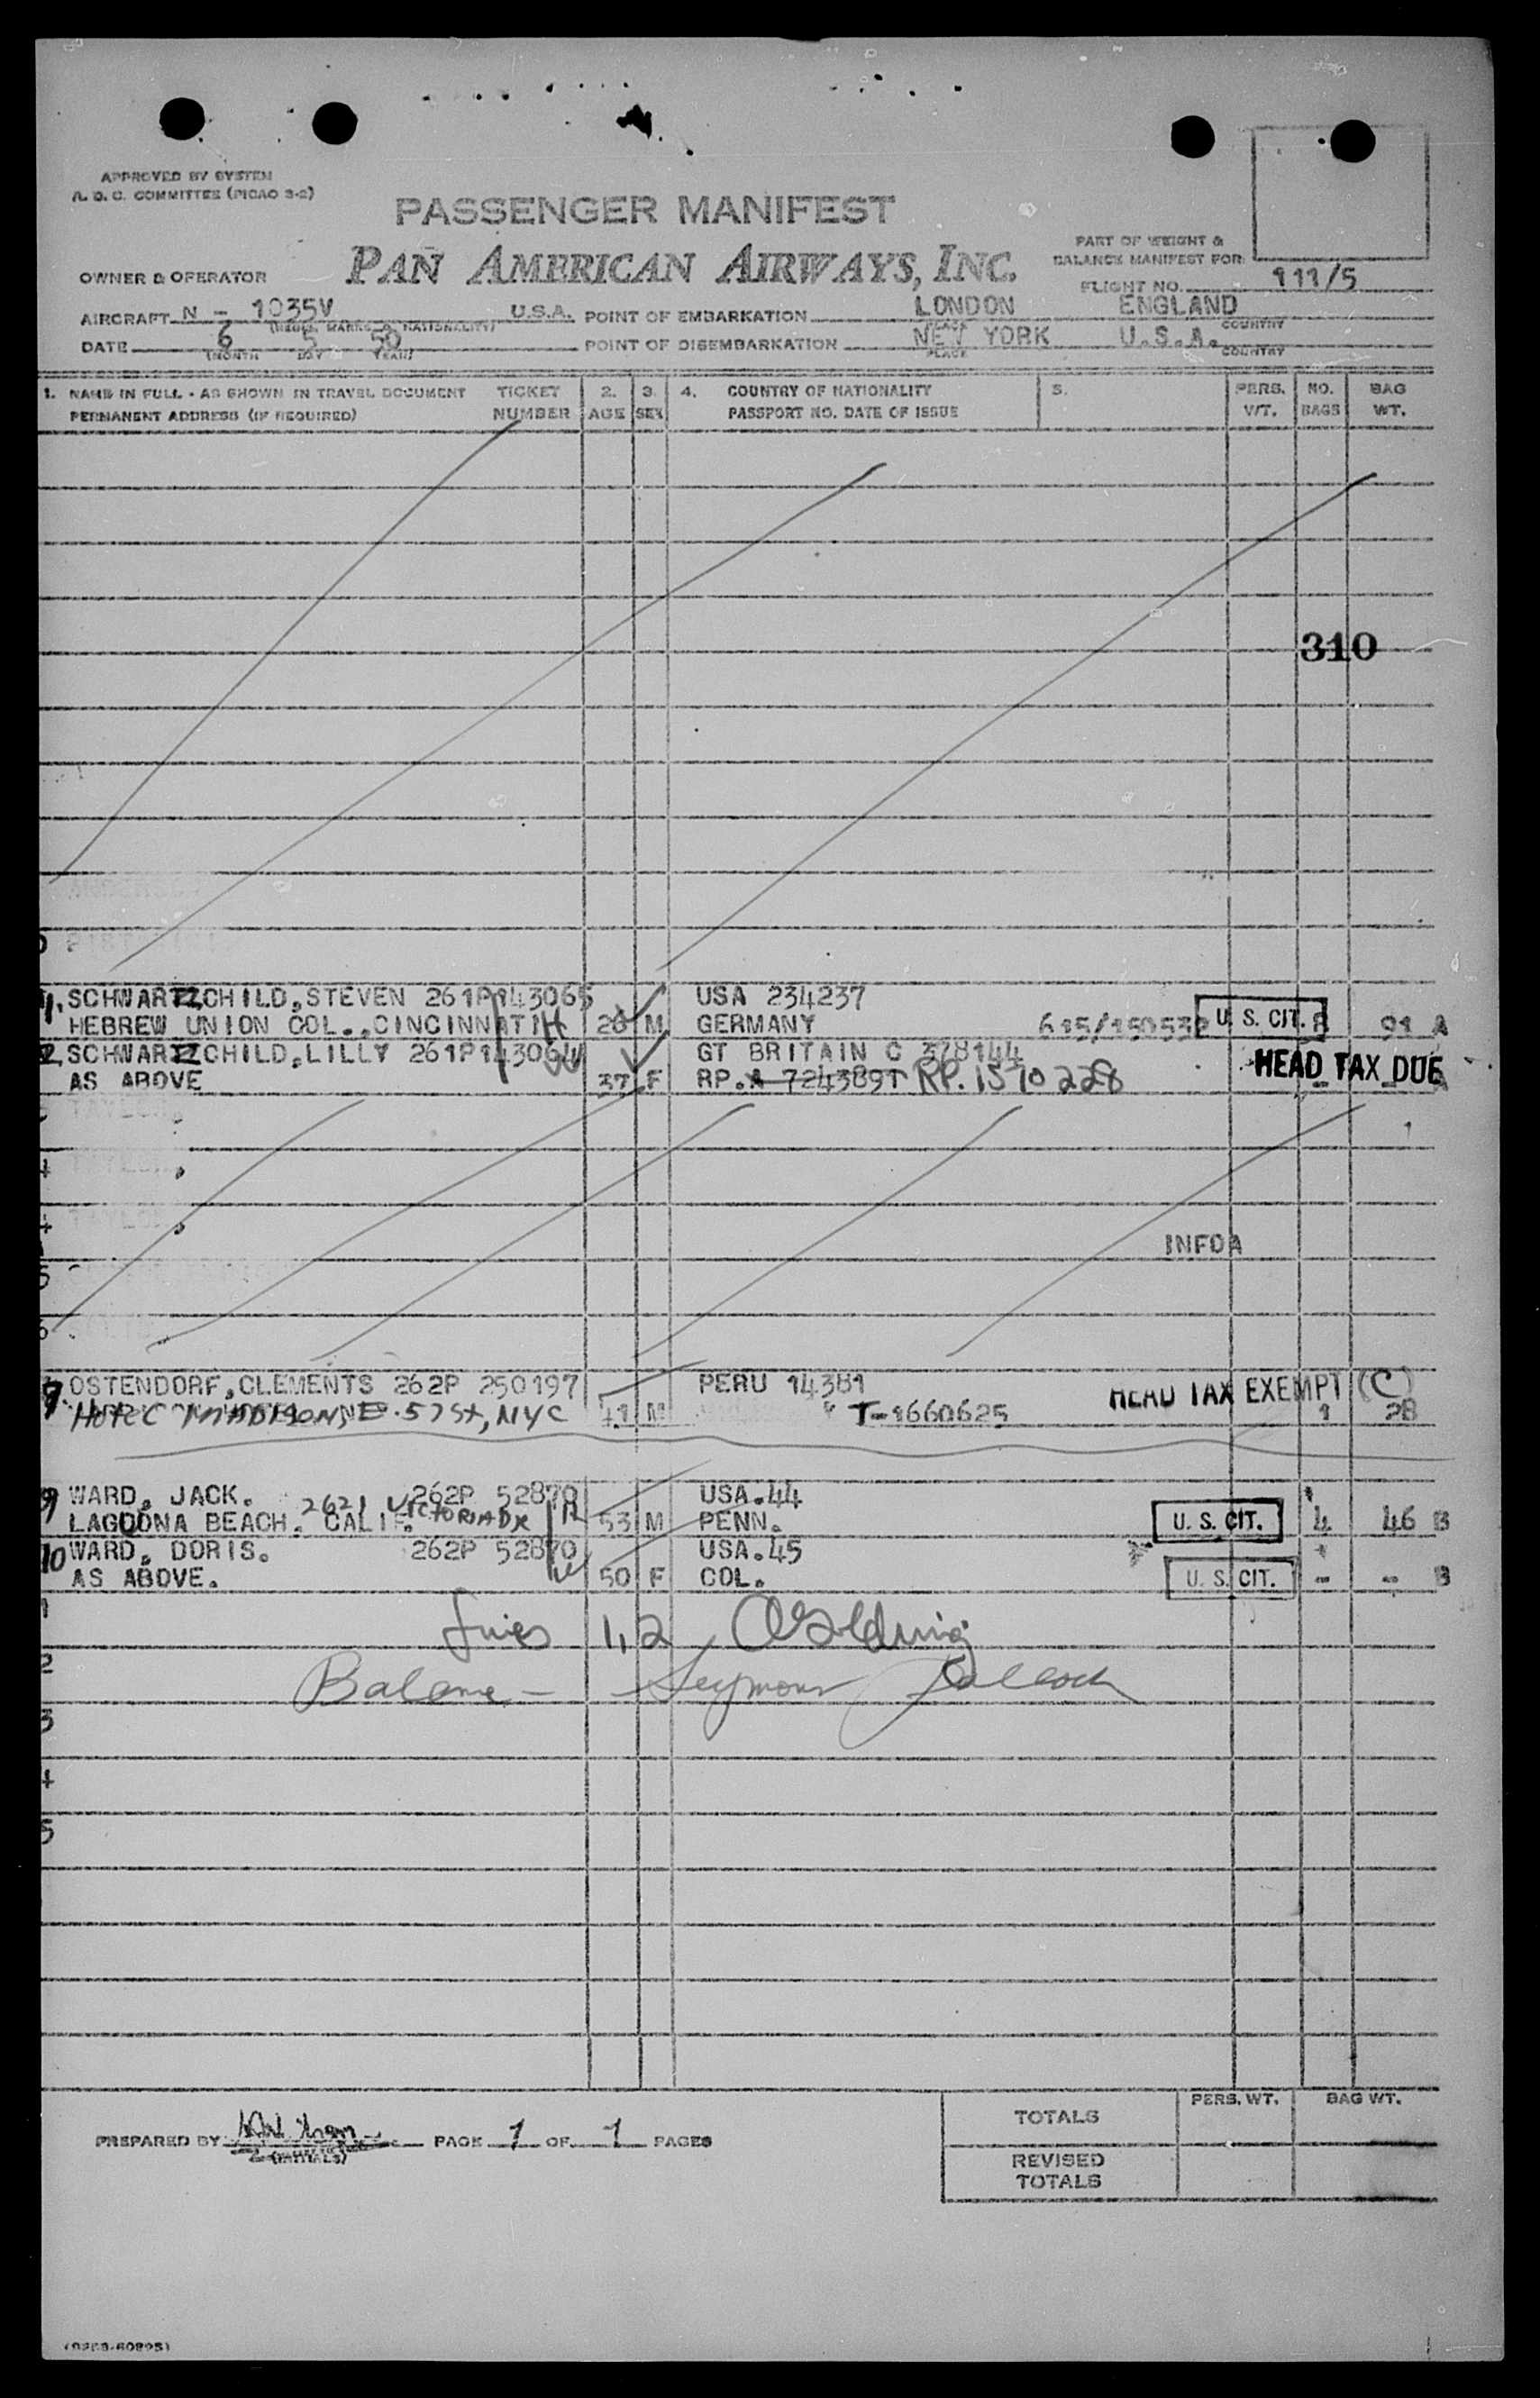 APPROVED BY SYSTEM
A. O. C. COMMITTEE (PICAO 3-2)
PASSENGER MANIFEST
PAN AMERICAN AIRWAYS, INC.
OWNER & OPERATOR
PART OF WEIGHT &
BALANCE MANIFEST FOR
FLIGHT NO. 111/5
AIRCRAFT N - 1035V U.S.A. POINT OF EMBARKATION LONDON ENGLAND
(REGIS. MARKS & NATIONALITY) PLACE COUNTRY
DATE 6 5 50 POINT OF DISEMBARKATION NEW YORK U.S.A.
(MONTH DAY YEAR) PLACE COUNTRY
1. NAME IN FULL - AS SHOWN IN TRAVEL DOCUMENT TICKET 2. 3. 4. COUNTRY OF NATIONALITY 5. PERS. NO. BAG
PERMANENT ADDRESS (IF REQUIRED) NUMBER AGE SEX PASSPORT NO. DATE OF ISSUE WT. BAGS WT.
310
1. SCHWARTZCHILD, STEVEN 261P143065 USA 234237
HEBREW UNION COL., CINCINNATI H 26 M GERMANY 615/150532 U. S. CIT. 91 A
2. SCHWARTZCHILD, LILLY 261P143064 W GT BRITAIN C 378144
AS ABOVE 37 F RP.A 7243891 RP. 1570228 HEAD TAX DUE A
4
4
5
INFOA
6
7. OSTENDORF, CLEMENTS 262P 250197 PERU 14381 HEAD TAX EXEMPT (C)
HOTEL MADISON, E. 57 St, NYC 41 M T-1660625 1 28
9 WARD, JACK. 262P 52870 USA.44
LAGOONA BEACH. CALIF. 2621 VICTORIA DR H 53 M PENN. U. S. CIT. 4 46 B
10 WARD, DORIS. 262P 52870 USA.45
AS ABOVE. W 50 F COL. U. S. CIT. - - B
1
Lines 1, 2 Golding
2
Balance - Seymour Pollock
3
4
5
TOTALS PERS. WT. BAG WT.
PREPARED BY (INITIALS) PAGE 1 OF 1 PAGES
REVISED
TOTALS